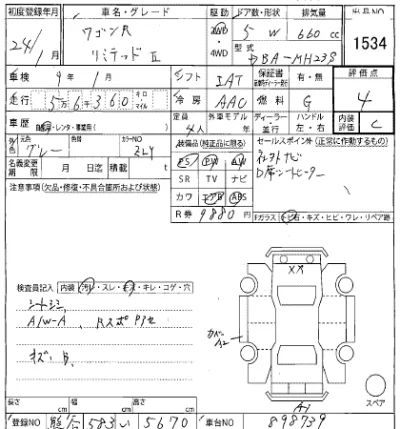 初度登録年月 車名・グレード 駆動 ドア数・形状 排気量 出品No
24/1月 ワゴンR リミテッドⅡ 2WD・4WD 5 W 660 cc 1534
型式 DBA-MH23S
車検 9年1月 シフト IAT 保証書 有・無 評価点
走行 5万6千360 キロ マイル 冷房 AAC 燃料 G 4
車歴 自家・レンタ・事業用( ) 定員 4人 外車モデル ディーラー 並行 ハンドル 左・右 内装評価 C
外色 グレー 色替 カラーNO ZLY 装備品(純正品に限る) セールスポイント (正常に作動するもの)
名義変更期限 月 日迄 積載 t PS PW AW ナビ
注意事項(欠品・修復・不具合箇所および状態) SR TV ナビ D席シートヒーター
カワ エアB ABS
R券 9880円 Fガラス トビ石・キズ・ヒビ・ワレ・リペア跡
XX
検査員記入 内装 汚レ・スレ・キズ・キレ・コゲ・穴
シートシミ
A/W-A
キズ
スペア
A1
長さ cm 幅 cm 高さ cm
登録NO 583 い 5670 車台NO 898739